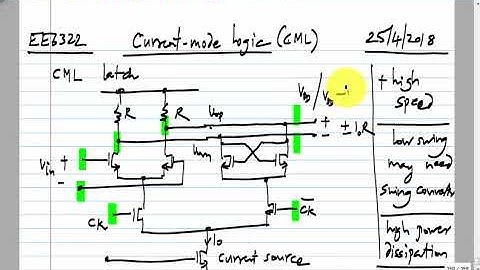 EE6322 Current-mode logic (CML) 25/4/2018
CML latch
R R
Vop
Vom
VDD / VDD - I
+
- ± I0R
Vin +
-
CK
CK
I0
current source
+ high speed
low swing
may need
swing converter
high power
dissipation